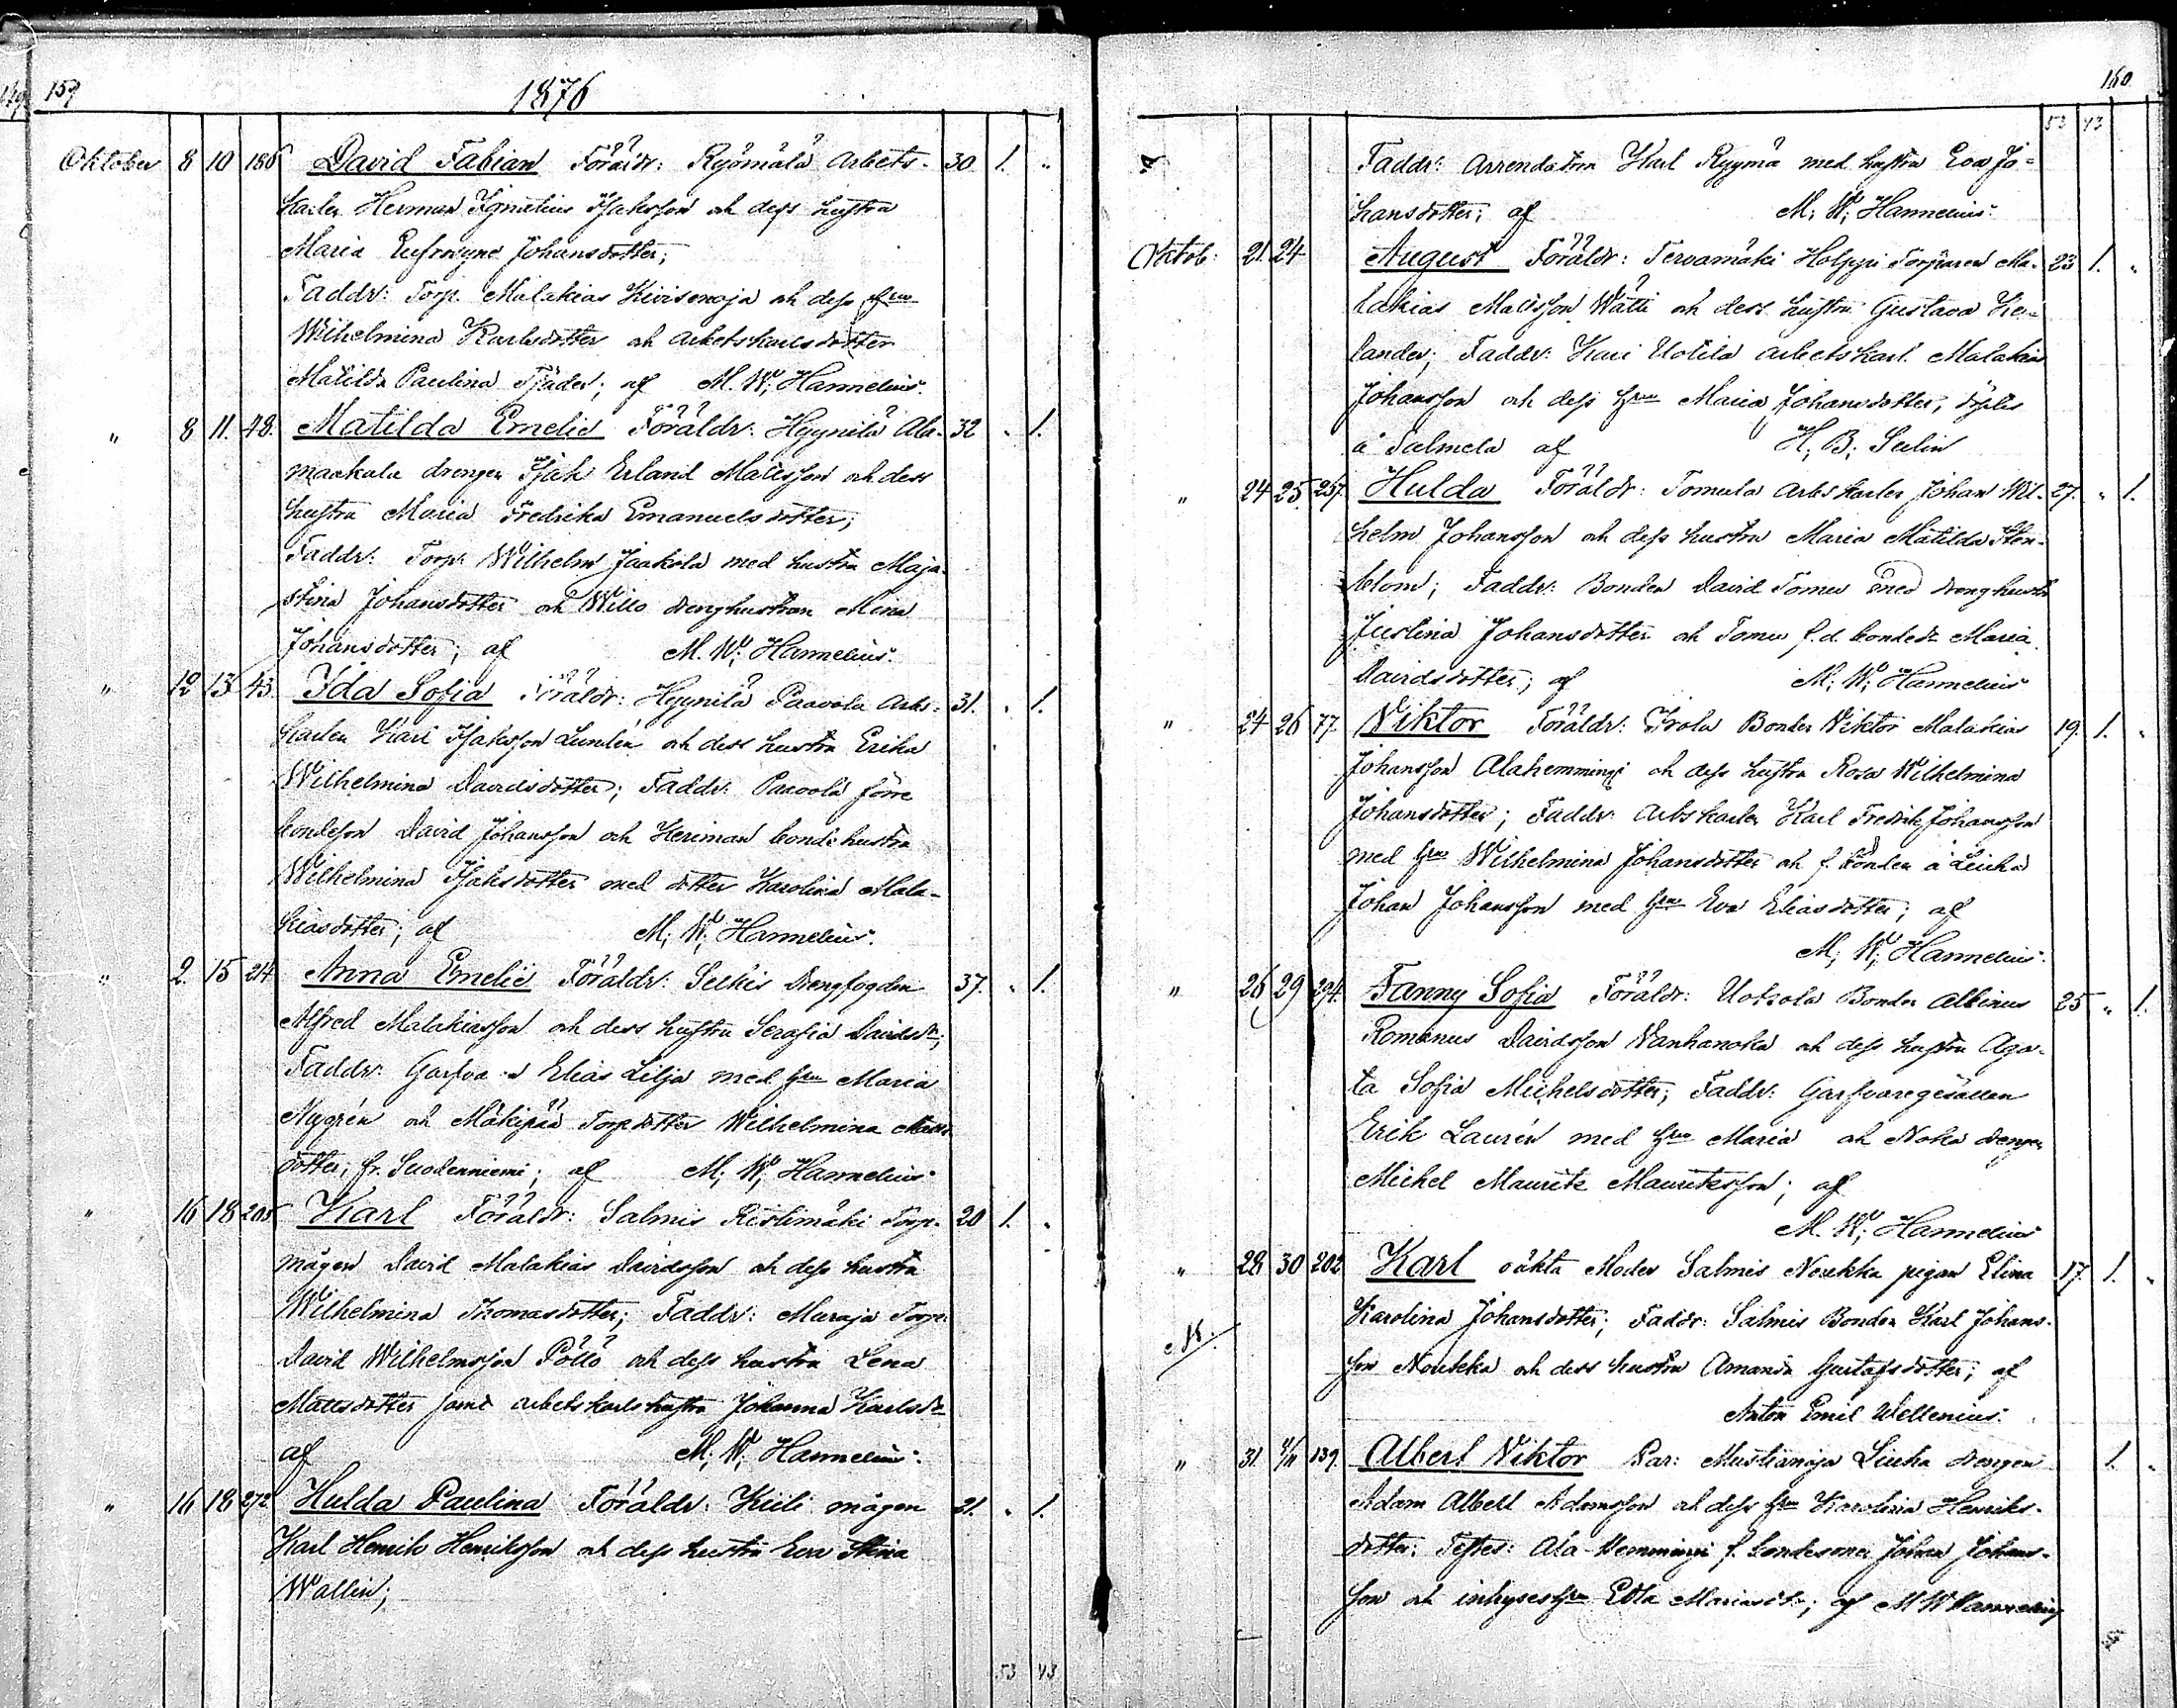 159
1876
Oktober 8 10 186 David Fabian Föräldr: Ryömälä Arbets- 30. 1. "
karlen Herman Ignatius Isaksson och dess hustru
Maria Eufrosyne Johansdotter;
Faddr: Torp. Malakias Kivisenoja och dess Hru
Wilhelmina Karlsdotter och arbetskarlsdotter
Matilda Paulina Tjäder; af M. W; Hannelius.
" 8 11. 48. Matilda Emelie Föräldr: Hyynilä Ala- 32 " 1.
maakala drengen Isak Erland Mattsson och dess
hustru Maria Fredrika Emanuelsdotter;
Faddr: Torp: Wilhelm Jaakola med hustru Maja
Stina Johansdotter och Willo drenghustrun Mina
Johansdotter; af M. W; Hannelius.
" 12 13 43. Ida Sofia Föräldr: Hyynilä Paavola Arbs- 31. " 1.
karlen Karl Isaksson Lundén och dess hustru Erika
Wilhelmina Davidsdotter; Faddr: Paavola förre
bondeson David Johansson och Heriman bondehustru
Wilhelmina Isaksdotter med dotter Karolina Mala-
kiasdotter; af M; W; Hannelius.
" 2. 15 214. Anna Emelie Föräldr: Selkis Drengfogden 37. " 1.
Alfred Malakiasson och dess hustru Serafia Davidsdr;
Faddr: Elias Lilja med Hru Maria
Nygrén och Mäkipää Torpdotter Wilhelmina Matts
dotter, fr. Suodenniemi; af M; W; Hannelius
" 16 18 205 Karl Föräldr: Salmis Ristimäki Torp- 20 1. "
mågen David Malakias Davidsson och dess hustru
Wilhelmina Thomasdotter; Faddr: Muraja Torp:
David Wilhelmsson Pöllö och dess hustru Lena
Mattsdotter samt arbetskarlshustru Johanna Karlsdr
af M; W; Hannelius.
" 16 18 272. Hulda Paulina Föräldr: Kiili mågen 21. " 1.
Karl Henrik Henriksson och dess hustru Eva Stina
Wallin;
53 43
160.
53 43
Faddr: Arrendatorn Karl Ryymä med hustru Eva Jo-
hansdotter; af M; W; Hannelius.
Oktob: 21. 24 August Föräldr: Tervamäki Holppi Torparen Ma- 23 1. "
lakias Mattsson Wätti och dess hustru Gustava He-
lander; Faddr: Kari Uotila arbetskarl Malakias
Johansson och dess Hru Maria Johansdotter, döptes
å Salmela af H; B; Selin
" 24 25. 257. Hulda Föräldr: Tomula Arbskarlen Johan Wil- 27. " 1.
helm Johansson och dess hustru Maria Matilda Sten-
blom; Faddr: Bonden David Tomu med drenghustr
Justina Johansdotter och Tomu f.d. bondedr Maria
Davidsdotter; af M; W; Hannelius
" 24 26 77. Viktor Föräldr: Frola Bonden Viktor Malakias 19. 1. "
Johansson Alahemmingi och dess hustru Rosa Wilhelmina
Johansdotter; Faddr: Arbskarlen Karl Fredrik Johansson
med Hru Wilhelmina Johansdotter och f. bonden å Liuha
Johan Johansson med Hru Eva Eliasdotter; af
M; W; Hannelius.
" 26 29 294. Fanny Sofia Föräldr: Uotsola Bonden Albinus 25 " 1.
Romanus Davidsson Vanhanoka och dess hustru Aga-
ta Sofia Michelsdotter; Faddr: Garfvaregesällen
Erik Laurén med Hru Maria och Noka drengen
Michel Mauritz Mauritzson; af
M. W; Hannelius
" 28. 30 202 Karl oäkta Moder Salmis Noukka pigan Elina 17. 1. "
Karolina Johansdotter; Faddr: Salmis Bonden Karl Johans-
son Noukka och dess hustru Amanda Gustafsdotter; af
Anton Emil Wellenius.
" 31. 139. Albert Viktor Par: Mustianoja Liuha drengen 1. "
Adam Albert Adamsson och dess Hru Karolina Henriks-
dotter; Testes: Ala-Hemmingi f. bondesonen Johan Johans-
son och inhyses Hru Edla Mariasdr; af M W Hannelius